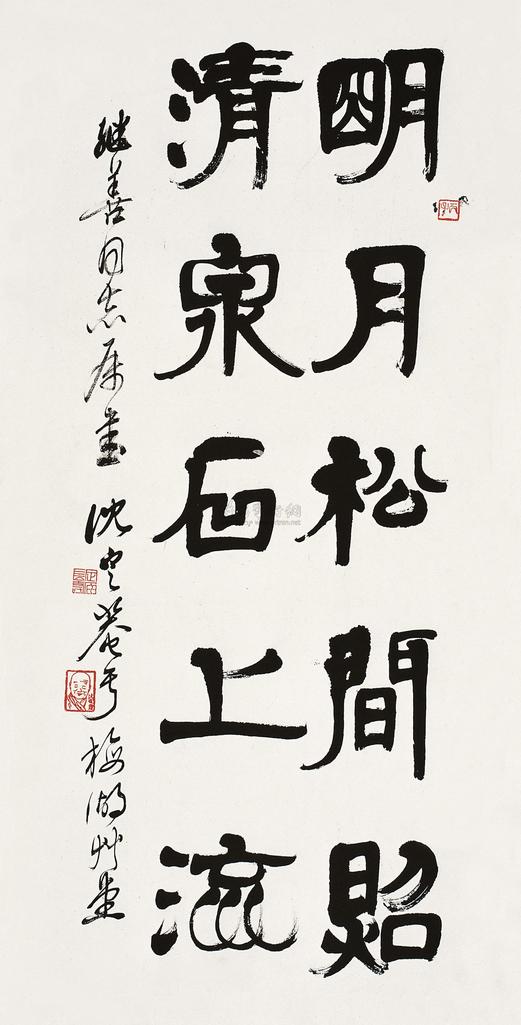 明月松間照
清泉石上流
继善同志属書 沈定菴于梅湖艸堂